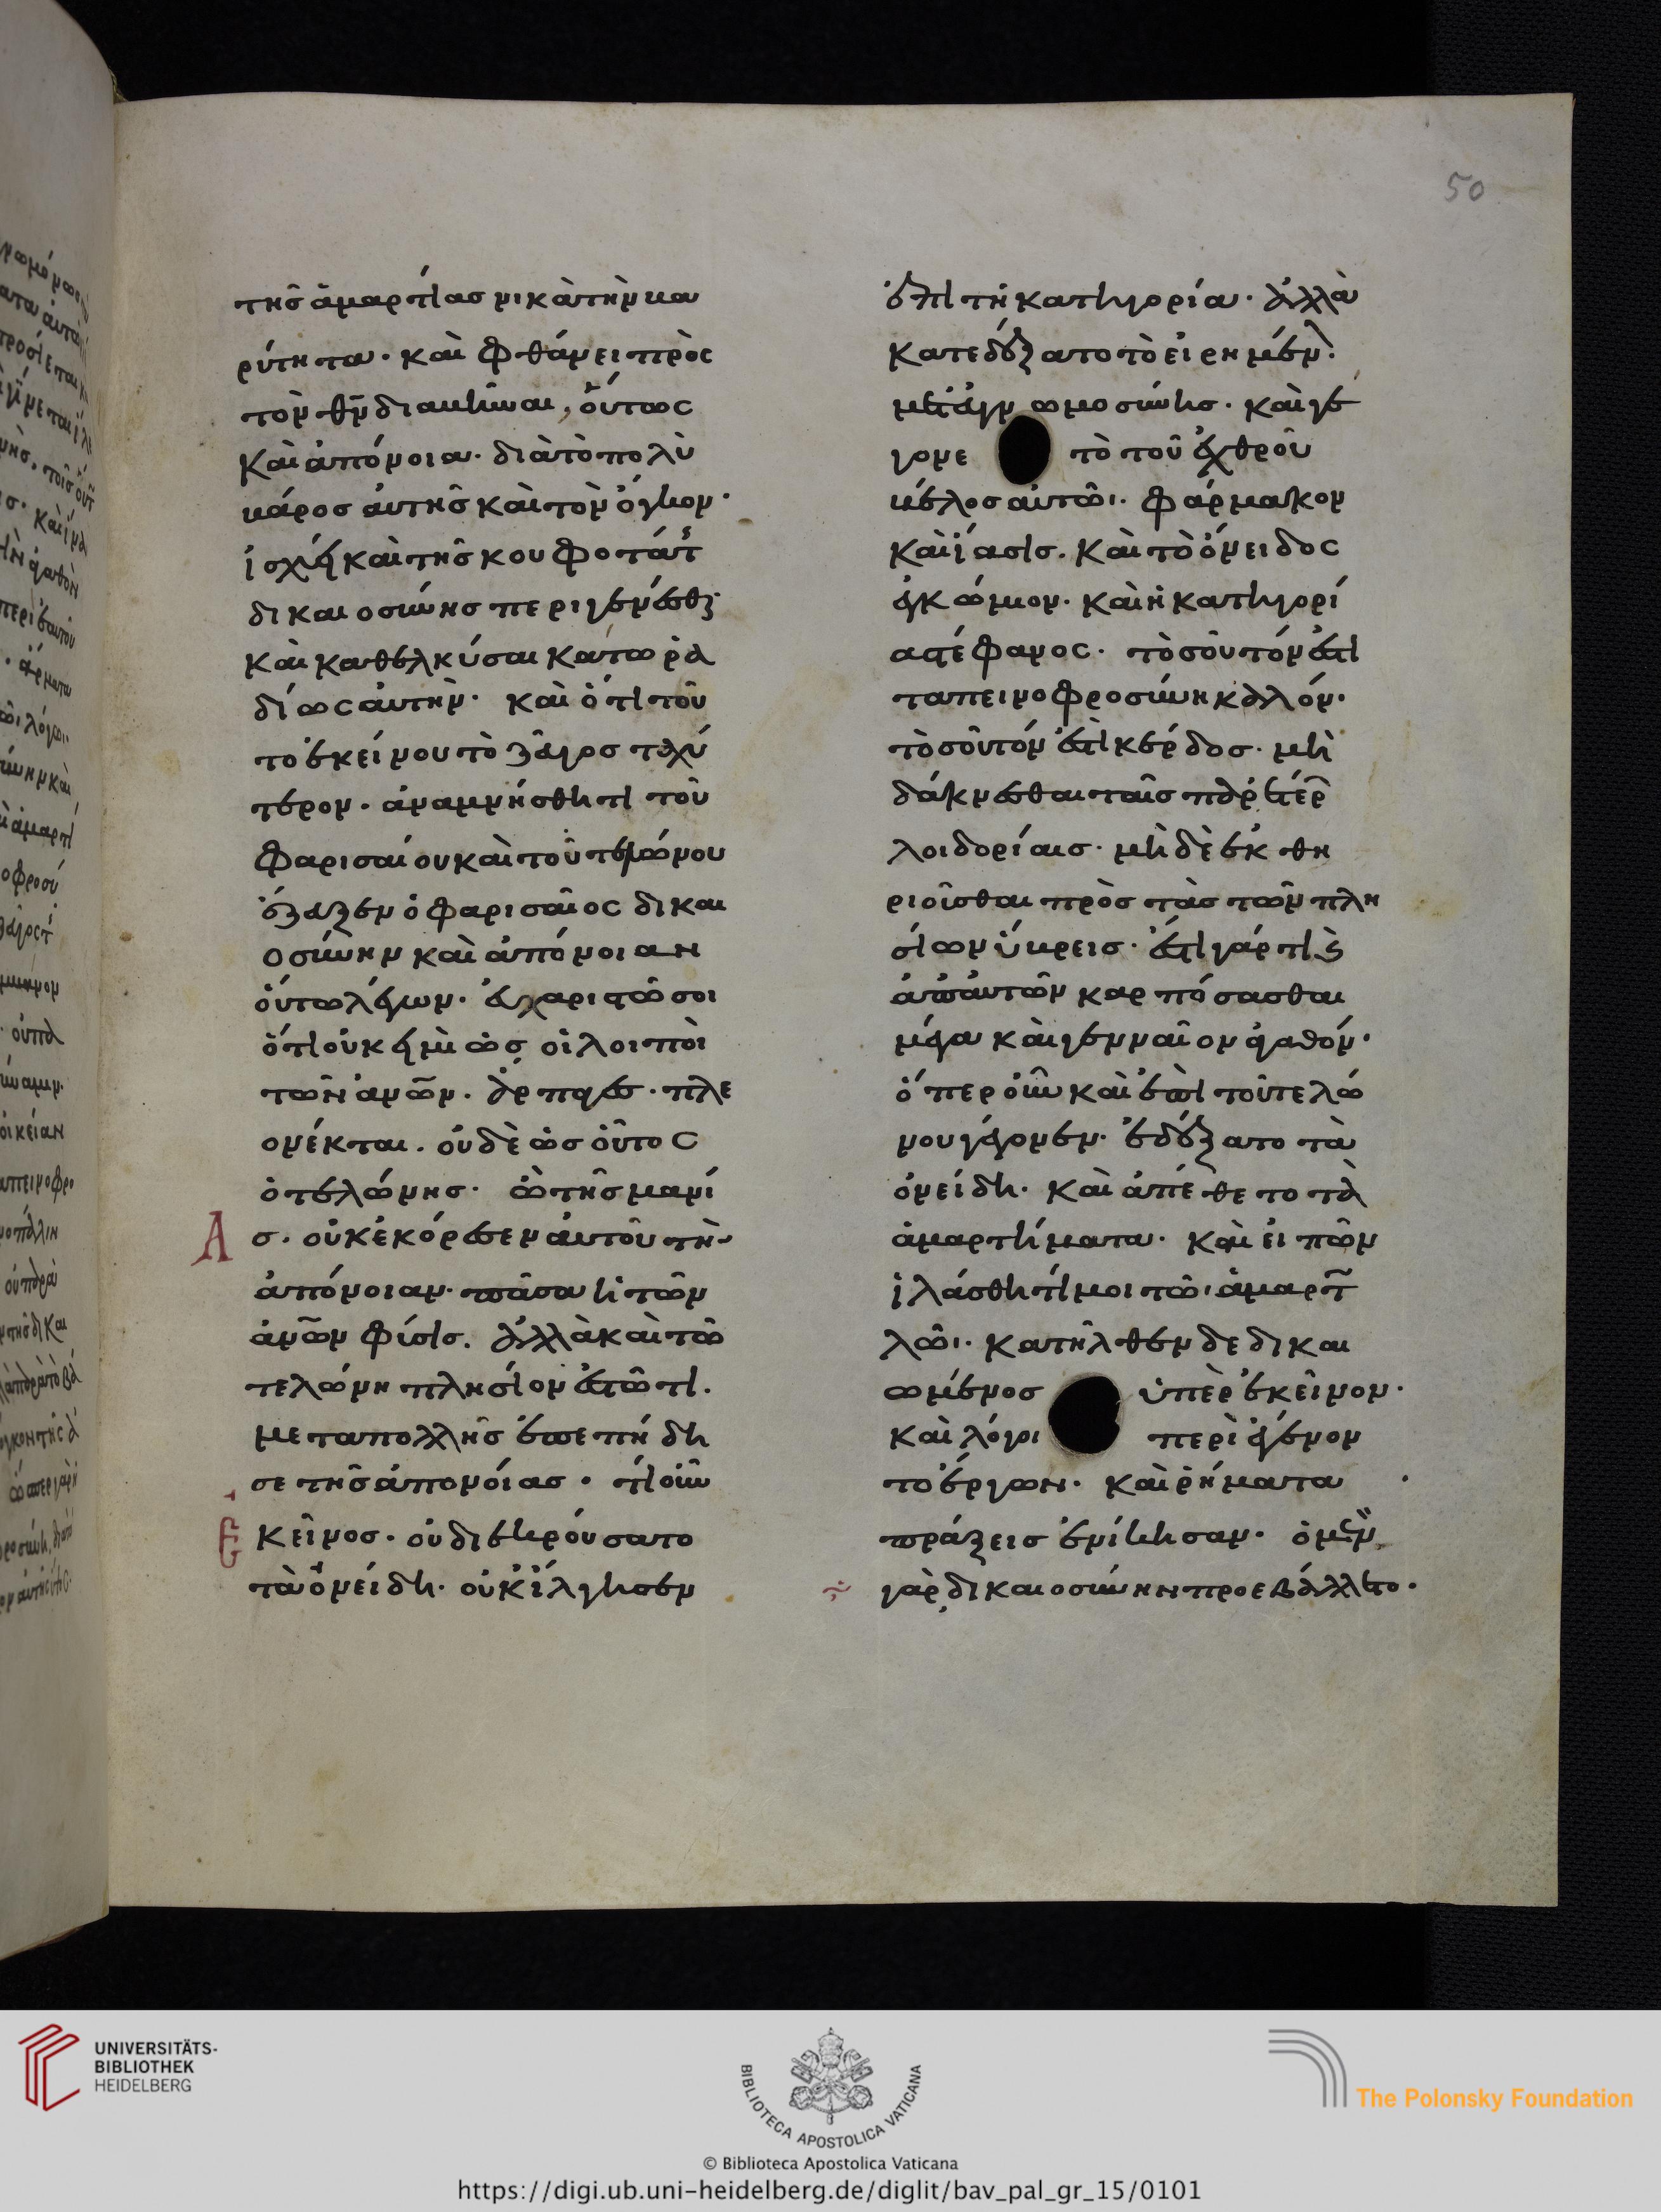 50
τῆς ἁμαρτίας νικᾶ τὴν βα
ρύτητα· καὶ φθάνει πρὸς
τὸν θν̄ διαβῆναι, οὕτως
καὶ ἀπόνοια· διὰ τὸ πολὺ
βάρος αὐτῆς καὶ τὸν ὄγκον·
ἰσχύει καὶ τῆς κουφοτάτ
δικαιοσύνης περιγενέσθαι·
καὶ καθελκύσαι κάτω ρα
δίως αὐτήν· καὶ ὅτι τοῦ
το ἐκείνου τὸ ζεῦγος ταχύ
τερον· ἀναμνήσθητι τοῦ
φαρισαίου καὶ τοῦ τελώνου
ἔζευξεν ὁ φαρισαῖος δικαι
οσύνην καὶ ἀπόνοιαν
οὕτω λέγων· εὐχαριστῶ σοι
ὅτι οὐκ εἰμὶ ὡς οἱ λοιποὶ
τῶν ἀνω̄ν· ἅρπαγες· πλε
ονέκται· οὐδὲ ὡς οὗτος
ὁ τελώνης· ὢ τῆς μανί
ας· οὐκ ἐκόρεσεν αὐτοῦ τὴν
ἀπόνοιαν· πᾶσα ἡ τῶν
ἀνω̄ν φύσις. ἀλλὰ καὶ τῶ
τελώνη πλησίον ἑστῶτι.
μετὰ πολλῆς ἐπεπήδη
σε τῆς ἀπονοίας· τί οὖν
ἐκεῖνος· οὐ διεκρούσατο
τὰ ὀνείδη· οὐκ ἤλγησεν
ἐπὶ τῆ κατηγορία· ἀλλὰ
κατεδέξατο τὸ εἰρημέν
μετ' εὐγνωμοσύνης· καὶ γέ
γονε τὸ τοῦ ἐχθροῦ
βέλος αὐτῶι· φάρμακον
καὶ ἴασις. καὶ τὸ ὄνειδος
ἐγκώμιον· καὶ ἡ κατηγορί
α στέφανος· τοσοῦτόν ἐστι
ταπεινοφροσύνη καλόν·
τοσοῦτόν ἐστι κέρδος· μὴ
δάκνεσθαι ταῖς παρ' ἑτέρ
λοιδορίαις· μὴ δὲ ἐκθη
ριοῦσθαι πρὸς τὰς τῶν πλη
σίον ὕβρεις· ἔστι γάρ τι καὶ
ἀπ' αὐτῶν καρπώσασθαι
μέγα καὶ γενναῖον ἀγαθόν·
ὅπερ οὖν καὶ ἐπὶ τοῦ τελώ
νου γέγονεν· ἐδέξατο τὰ
ὀνείδη· καὶ ἀπέθετο τὰ
ἁμαρτήματα· καὶ εἰπὼν
ἱλάσθητί μοι τῶι ἁμαρτ
λῶι· κατῆλθεν δεδικαι
ωμένος ὑπὲρ ἐκεῖνον·
καὶ λόγοι περιεγένον
το ἔργων· καὶ ῥήματα
πράξεις ἐνίκησαν· ὁ μὲν
γὰρ δικαιοσύνην προεβάλλετο·
UNIVERSITÄTS-
BIBLIOTHEK
HEIDELBERG
BIBLIOTECA APOSTOLICA VATICANA
The Polonsky Foundation
© Biblioteca Apostolica Vaticana
https://digi.ub.uni-heidelberg.de/diglit/bav_pal_gr_15/0101